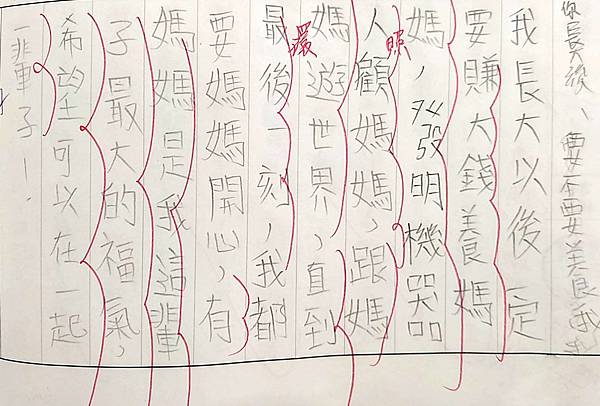 你長大後、要不要養我
我長大以後一定
要賺大錢養媽
媽，發明機器
人照顧媽媽，跟媽
媽環遊世界，直到
最後一刻，我都
要媽媽開心，有
媽媽是我這輩
子最大的福氣，
希望可以在一起
一輩子！